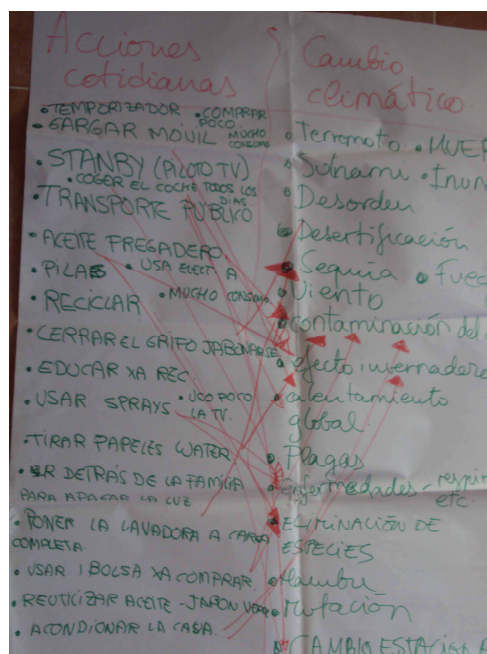 Acciones
cotidianas
• TEMPORIZADOR • COMPRAR
POCO
• CARGAR MOVIL MUCHO
CONSUMO
• STANBY (PILOTO TV)
• COGER EL COCHE TODOS LOS
DIAS
• TRANSPORTE PÚBLICO
• ACEITE FREGADERO.
• PILAS • USA ELECT. A
• RECICLAR • MUCHO CONSUMO.
• CERRAR EL GRIFO JABONARSE
• EDUCAR XA REC.
• USAR SPRAYS • USO POCO
LA TV.
• TIRAR PAPELES WATER
• IR DETRÁS DE LA FAMILIA
PARA APAGAR LA LUZ
• PONER LA LAVADORA A CARGA
COMPLETA.
• USAR 1 BOLSA XA COMPRAR.
• REUTILIZAR ACEITE - JABON
• ACONDIONAR LA CASA.
Cambio
climático.
• Terremoto • MUER
• Sunami • Inun
• Desorden
• Desertificación
• Sequía • Fueg
• Viento
• contaminación del
• efecto invernadero
• calentamiento
global.
• Plagas
• enfermedades - respir
etc.
• ELIMINACIÓN DE
ESPECIES
• Hambre
• Mutación
• CAMBIO ESTACION